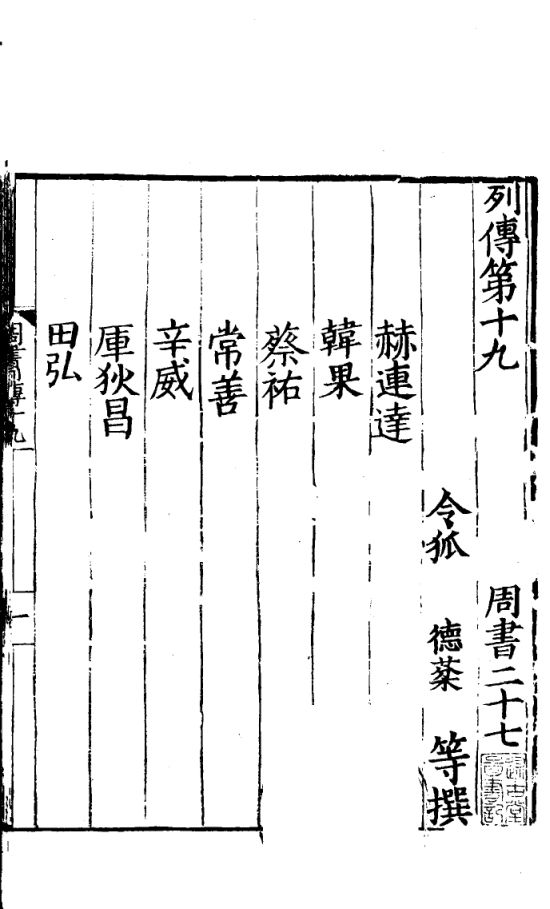 列傳第十九 周書二十七
令狐 德棻 等撰
赫連達
韓果
蔡祐
常善
辛威
厙狄昌
田弘
周書列傳十九 一